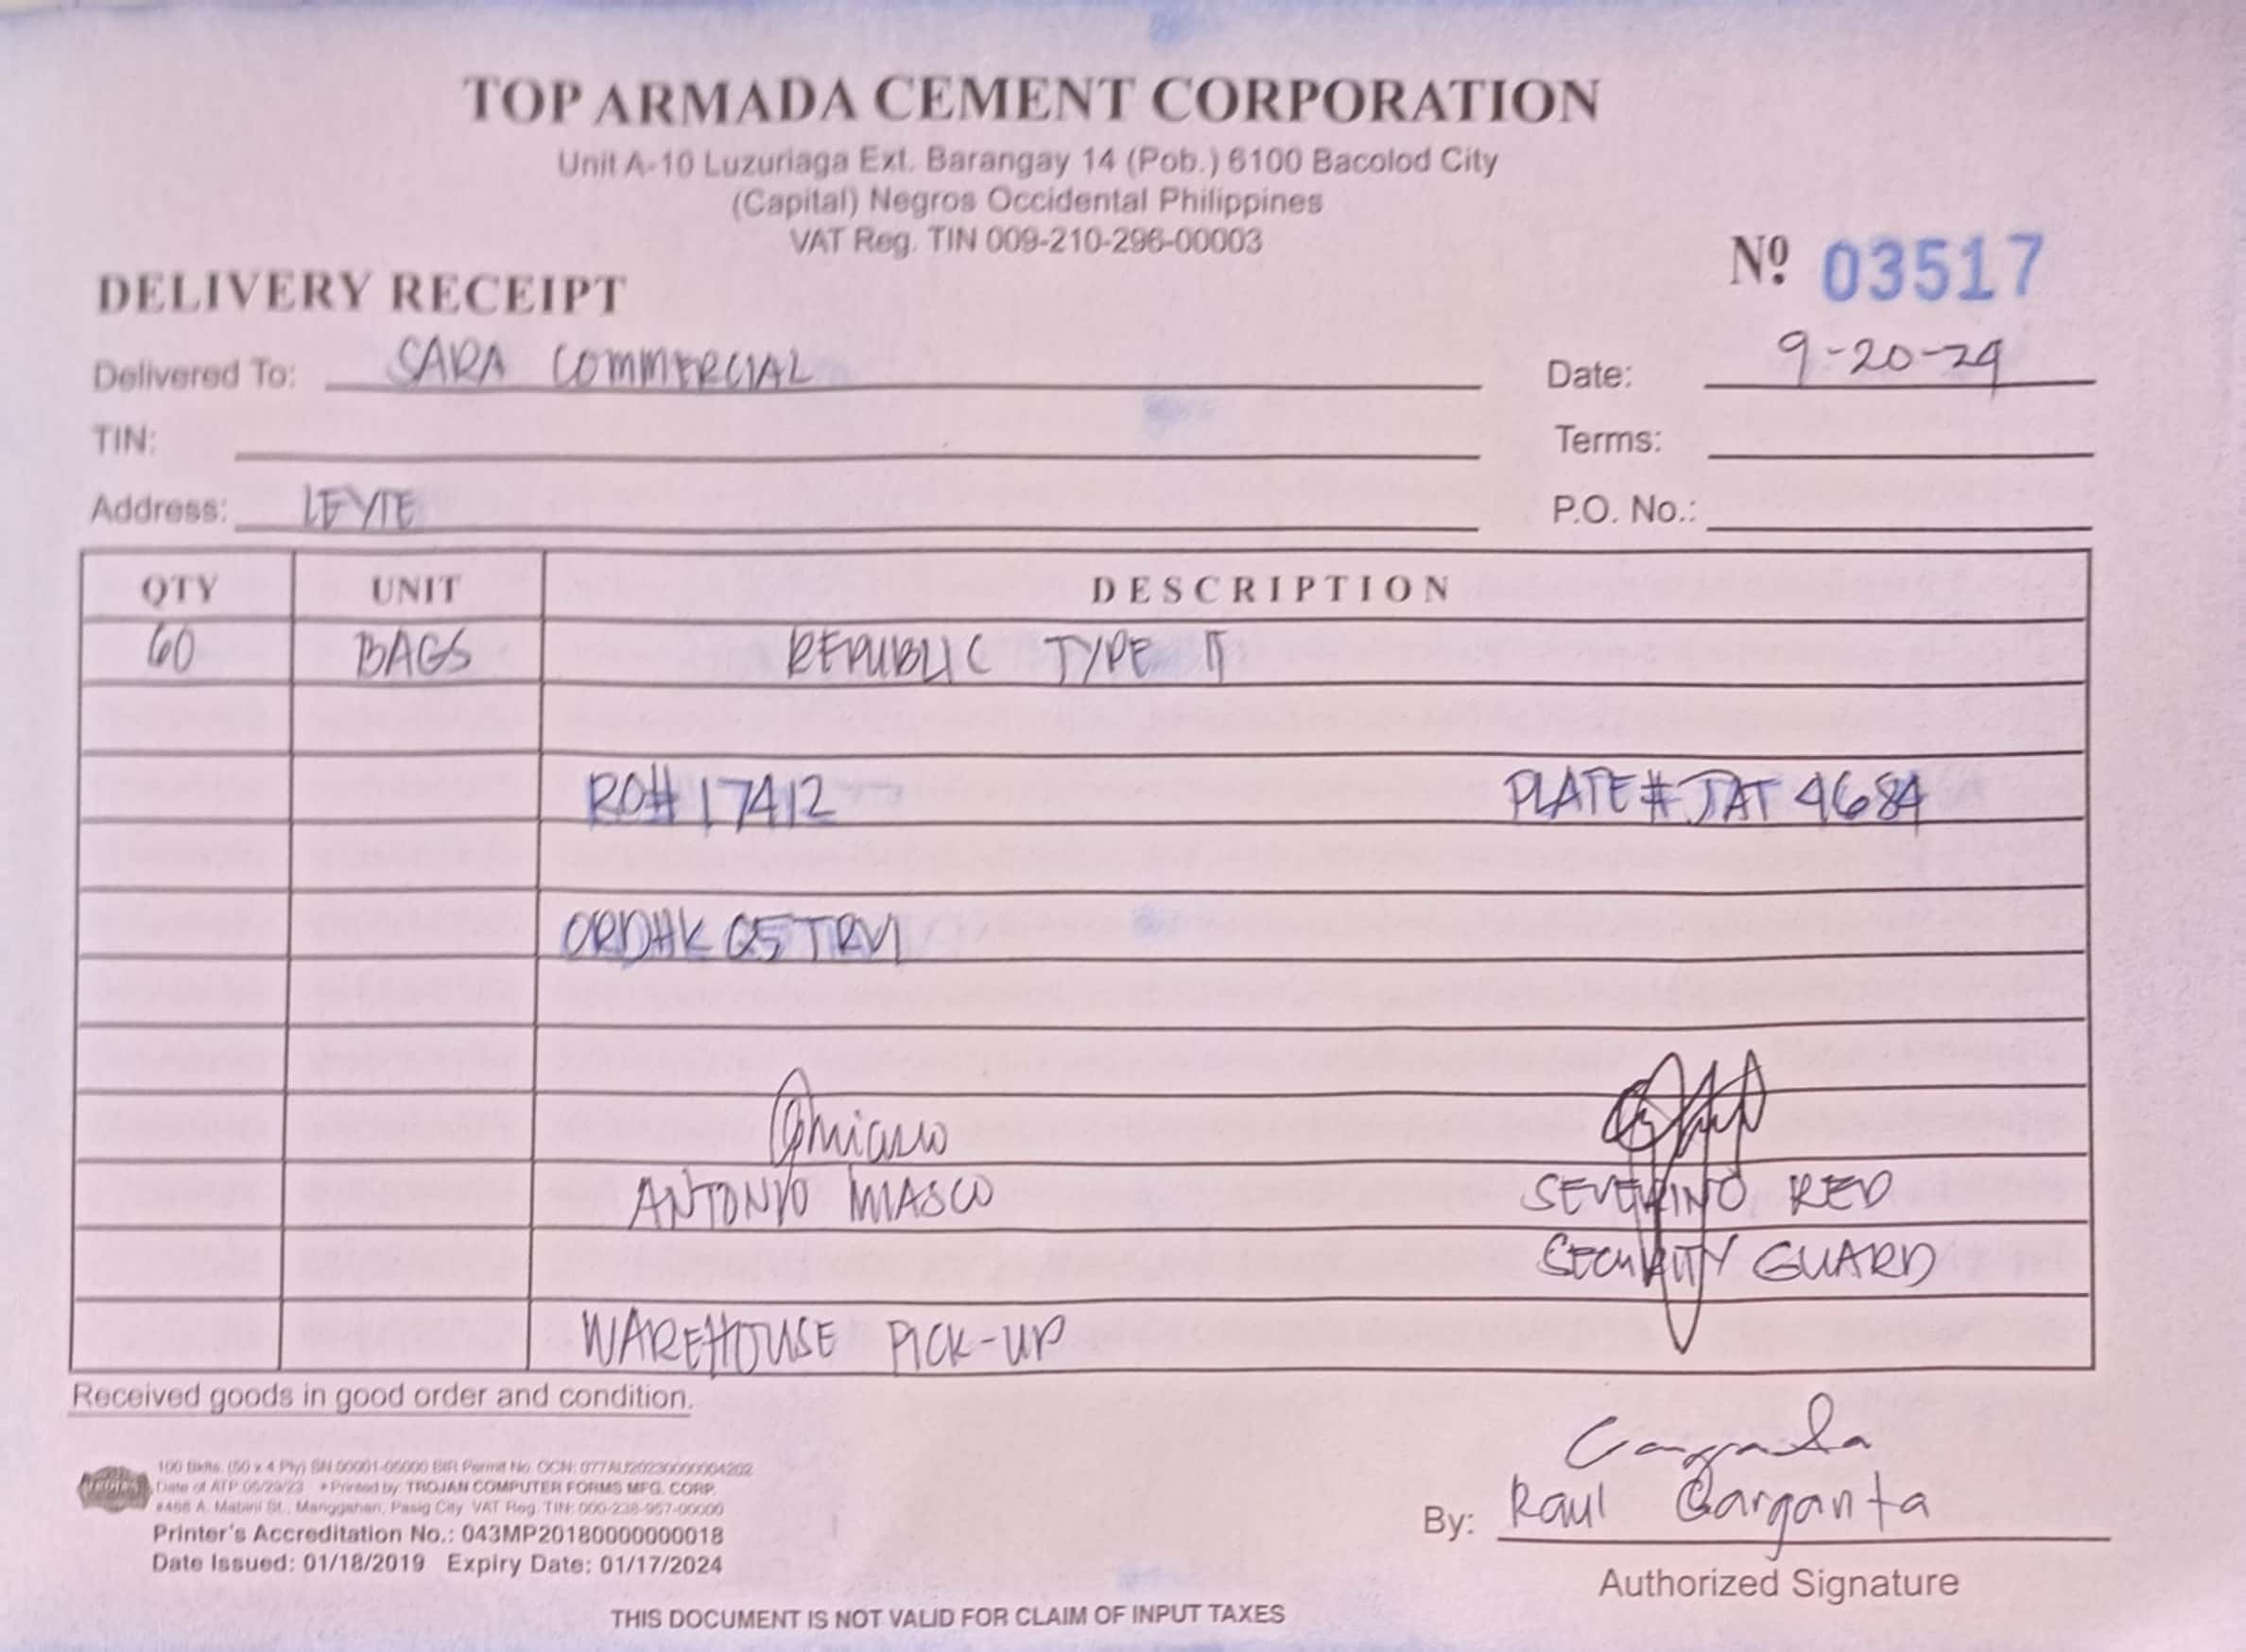 TOP ARMADA CEMENT CORPORATION
Unit A-10 Luzuriaga Ext. Barangay 14 (Pob.) 6100 Bacolod City
(Capital) Negros Occidental Philippines
VAT Reg. TIN 009-210-296-00003
Nº 03517
DELIVERY RECEIPT
Delivered To: SARA COMMERCIAL Date: 9-20-24
TIN: Terms:
Address: LEYTE P.O. No.:
QTY UNIT DESCRIPTION
60 BAGS REPUBLIC TYPE II
RO# 17412 PLATE # JAT 4684
ANTONIO MIASCO SEVERINO RED
SECURITY GUARD
WAREHOUSE PICK-UP
Received goods in good order and condition.
100 Bklts. (50 x 4 Ply) SN 00001-05000 BIR Permit No. OCN: 077AU20230000004202
Date of ATP 05/29/23 • Printed by: TROJAN COMPUTER FORMS MFG. CORP.
#466 A. Mabini St., Manggahan, Pasig City VAT Reg. TIN: 000-238-957-00000
Printer's Accreditation No.: 043MP20180000000018
Date Issued: 01/18/2019 Expiry Date: 01/17/2024
By: Raul Garganta
Authorized Signature
THIS DOCUMENT IS NOT VALID FOR CLAIM OF INPUT TAXES